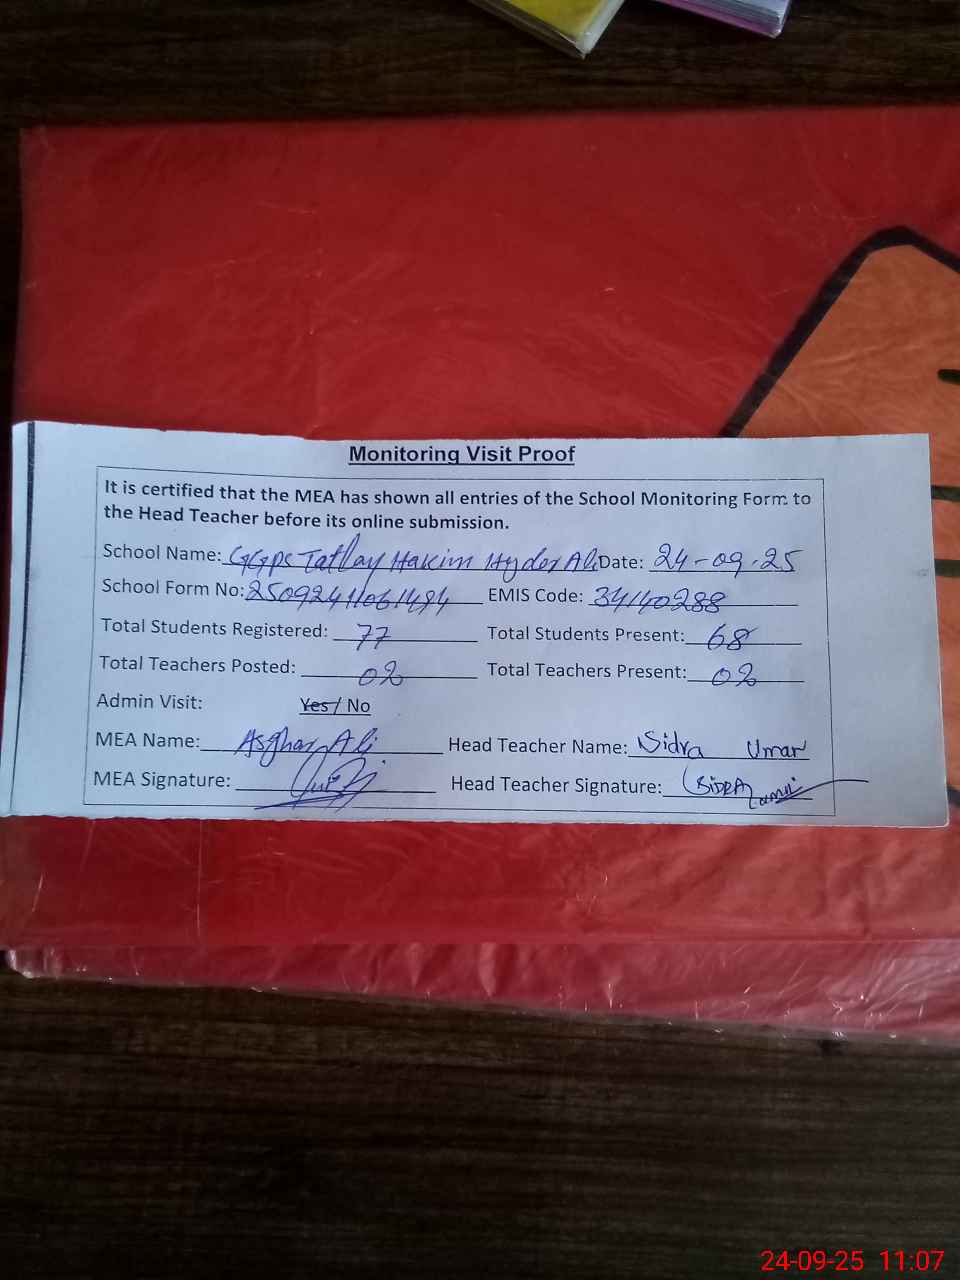 Monitoring Visit Proof
It is certified that the MEA has shown all entries of the School Monitoring Form to
the Head Teacher before its online submission.
School Name: GGPS Tatlay Hakim Hyder Ali Date: 24-09-25
School Form No: 25092411061494 EMIS Code: 34140288
Total Students Registered: 77 Total Students Present: 68
Total Teachers Posted: 02 Total Teachers Present: 02
Admin Visit: Yes / No
MEA Name: Asghar Ali Head Teacher Name: Sidra Umar
MEA Signature: Head Teacher Signature: SIDRA
24-09-25 11:07